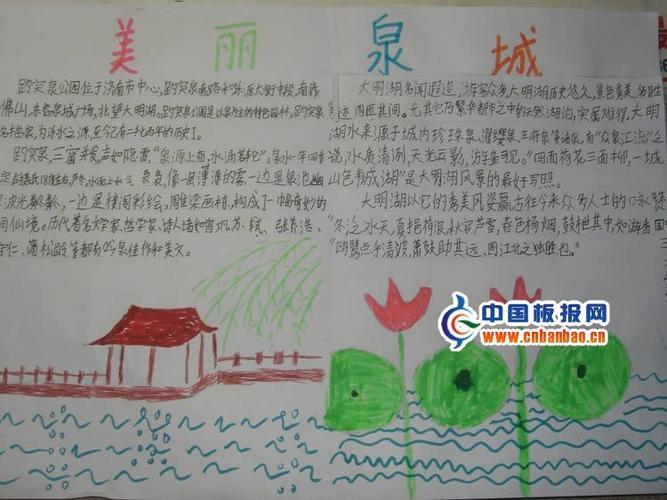 美丽泉城
趵突泉公园位于济南市中心,趵突泉南路和泺源大街中段,南靠
佛山,东临泉城广场,北望大明湖。趵突泉公园是以泉为主的特色园林。趵突泉
名,为泺水之源,至今有二七百年的历史了。
趵突泉,三窟并发,声如隐雷,"泉源上奋,水涌若轮"。泉水一年四季
定在摄氏18度左右。严冬,水面上水气袅袅,像一层薄薄的雾,一边是泉池幽
波光粼粼,一边是楼阁彩绘,雕梁画栋,构成了一幅奇妙的
间仙境。历代著名文学家、哲学家、诗人诸如曾巩、苏轼、张养浩、
守仁、蒲松龄等都有吟泉佳作和美文。
大明湖名闻遐迩,游客众多,大明湖历史悠久,景色秀美,名胜古
迹周匝其间。尤其它乃繁华都市之中的天然湖泊,实属难得。大明
湖水来源于城内珍珠泉、濯缨泉、王府泉等诸泉,有"众泉汇流"之
说,水质清冽,天光云影,游鱼可见。"四面荷花三面柳,一城
山色半城湖"是大明湖风景的最好写照。
大明湖以它的秀美风姿赢古往今来众多人士的心
冬泛冰天,夏挹荷浪,秋容芦雪,春色杨烟,鼓枻其中,如游香国
"鸥鹭点乎清波,箫鼓助其远,固江北之独胜也。"
中国板报网
www.cnbanbao.cn